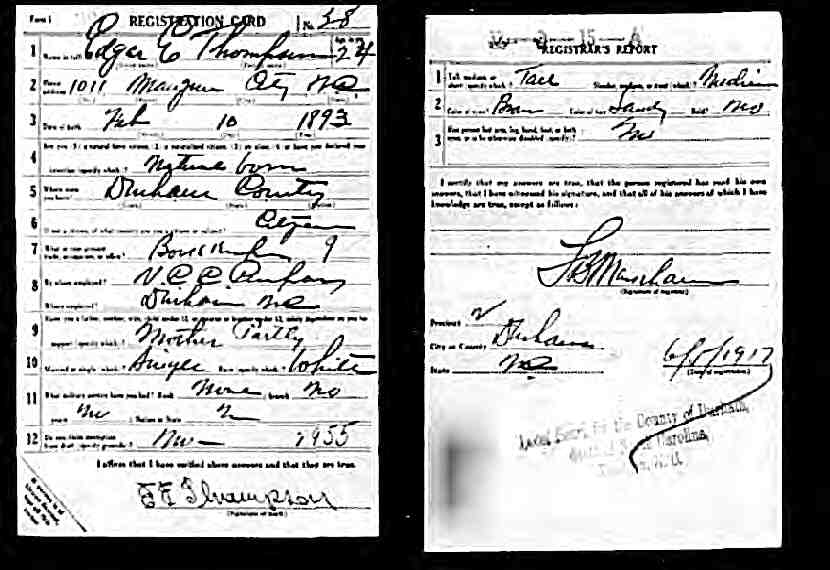 Form 1 REGISTRATION CARD No. 58
1 Name in full Edgar E Thompson Age, in yrs. 24
2 Home address 1011 Mangum City NC
3 Date of birth Feb 10 1893
4 Are you (1) a natural born citizen, (2) a naturalized citizen, (3) an alien, (4) or have you declared your
intention (specify which)? Natural born
5 Where were you born? Durham County
6 If not a citizen, of what country are you a citizen or subject? Citizen
7 What is your present trade, occupation, or office? 9
8 By whom employed? V C C Company
Where employed? Durham NC
9 Have you a father, mother, wife, child under 12, or a sister or brother under 12, solely dependent on you for
support (specify which)? Mother Partly
10 Married or single (which)? Single Race (specify which)? White
11 What military service have you had? Rank None ; branch No
years No ; Nation or State
12 Do you claim exemption from draft (specify grounds)? 1955
I affirm that I have verified above answers and that they are true.
E E Thompson
(Signature or mark)
15 - A
REGISTRAR'S REPORT
1 Tall, medium, or short (specify which)? Tall Slender, medium, or stout (which)? Medium
2 Color of eyes? Brown Color of hair? Sandy Bald? No
3 Has person lost arm, leg, hand, foot, or both eyes, or is he otherwise disabled (specify)? No
I certify that my answers are true, that the person registered has read his own
answers, that I have witnessed his signature, and that all of his answers of which I have
knowledge are true, except as follows:
(Signature of registrar)
Precinct
City or County Durham
State NC 1917
(Date of registration)
Local Board for the County of Durham,
State of North Carolina,